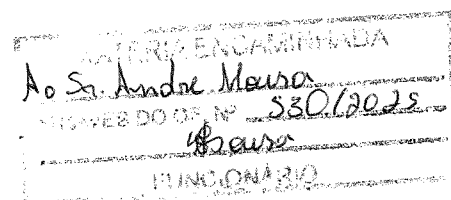 MATÉRIA ENCAMINHADA
Ao Sr. Andre Moura
ATRAVES DO OF. Nº 530/2025
FUNCIONÁRIO